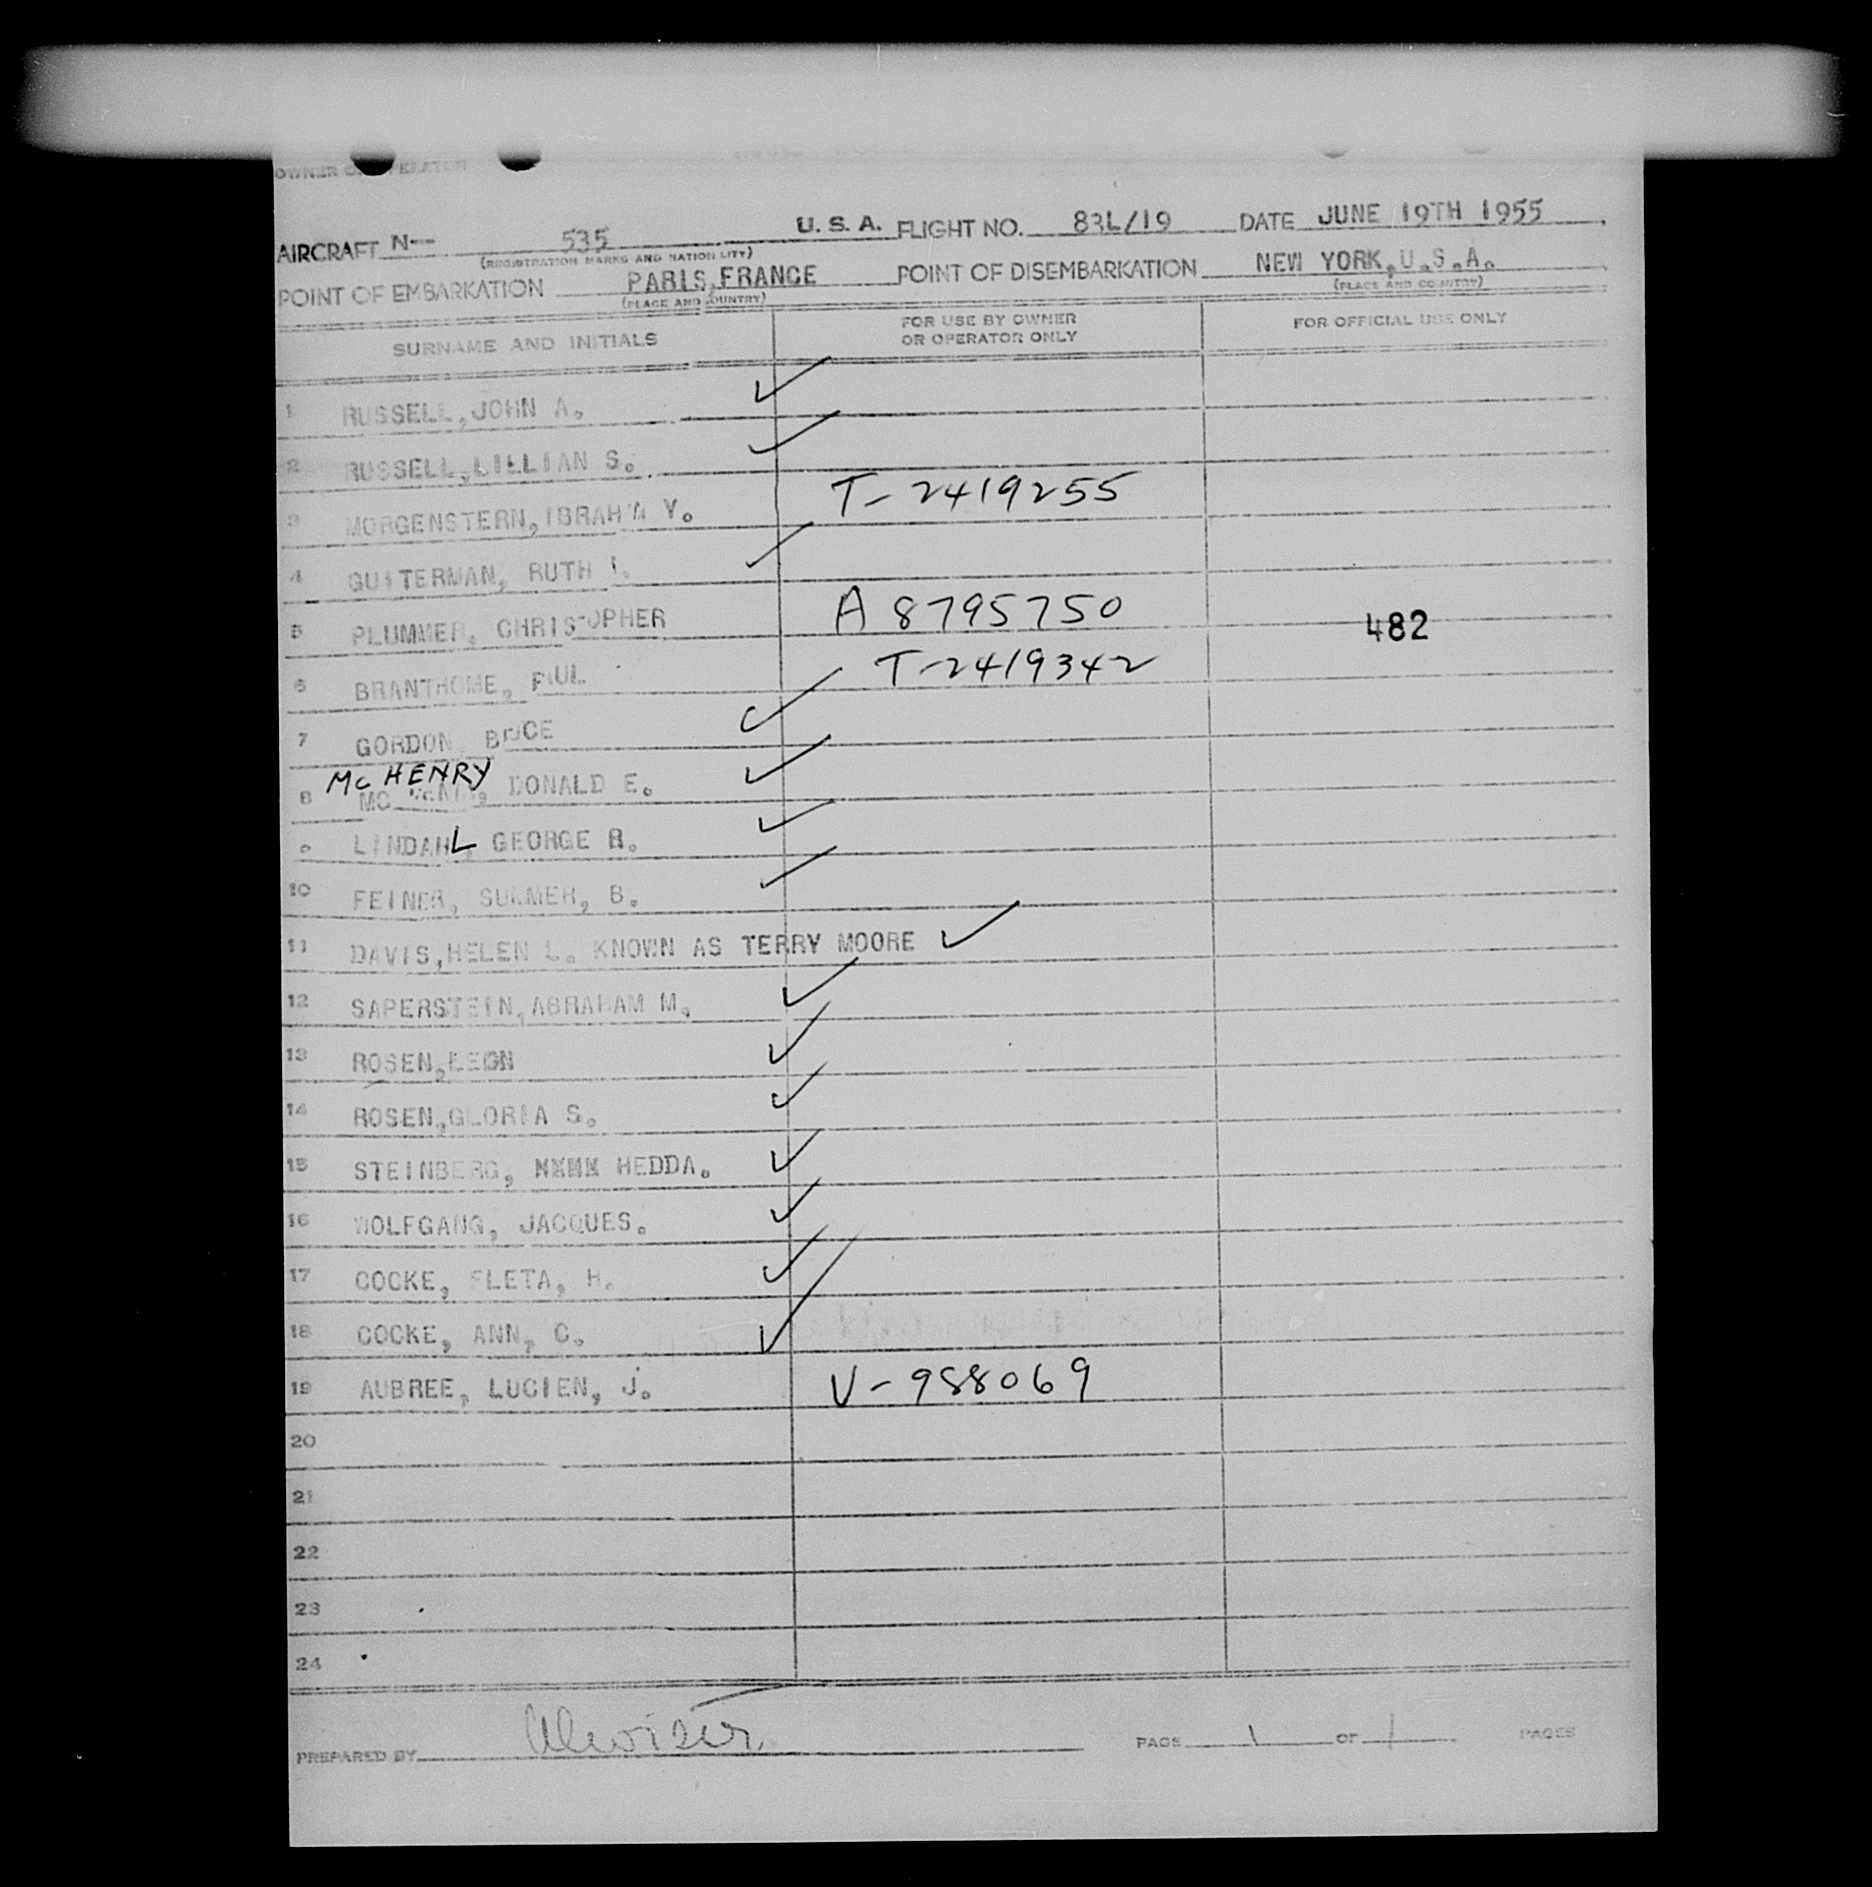 OWNER OR OPERATOR
AIRCRAFT N-- 535 U. S. A. FLIGHT NO. 83L/19 DATE JUNE 19TH 1955
(REGISTRATION MARKS AND NATIONALITY)
POINT OF EMBARKATION PARIS,FRANCE POINT OF DISEMBARKATION NEW YORK,U.S.A.
(PLACE AND COUNTRY) (PLACE AND COUNTRY)
SURNAME AND INITIALS FOR USE BY OWNER OR OPERATOR ONLY FOR OFFICIAL USE ONLY
1 RUSSELL,JOHN A. ✓
2 RUSSELL,LILLIAN S. ✓
3 MORGENSTERN, V. T-2419255
4 RUTH I. ✓
5 PLUMMER, CHRISTOPHER A 8795750 482
6 BRANTHOME, PAUL T-2419342
7 GORDON, BRUCE ✓
McHENRY
8 MC DONALD E. ✓
9 LINDAHL, GEORGE R. ✓
10 FEINER, B. ✓
11 DAVIS,HELEN L. KNOWN AS TERRY MOORE ✓
12 SAPERSTEIN,ABRAHAM M. ✓
13 ROSEN,LEON ✓
14 ROSEN,GLORIA S. ✓
15 STEINBERG, HEDDA. ✓
16 WOLFGANG, JACQUES. ✓
17 COCKE, FLETA, H. ✓
18 COCKE, ANN, C. ✓
19 AUBREE, LUCIEN, J. V-988069
20
21
22
23
24
PREPARED BY PAGE 1 OF 1 PAGES